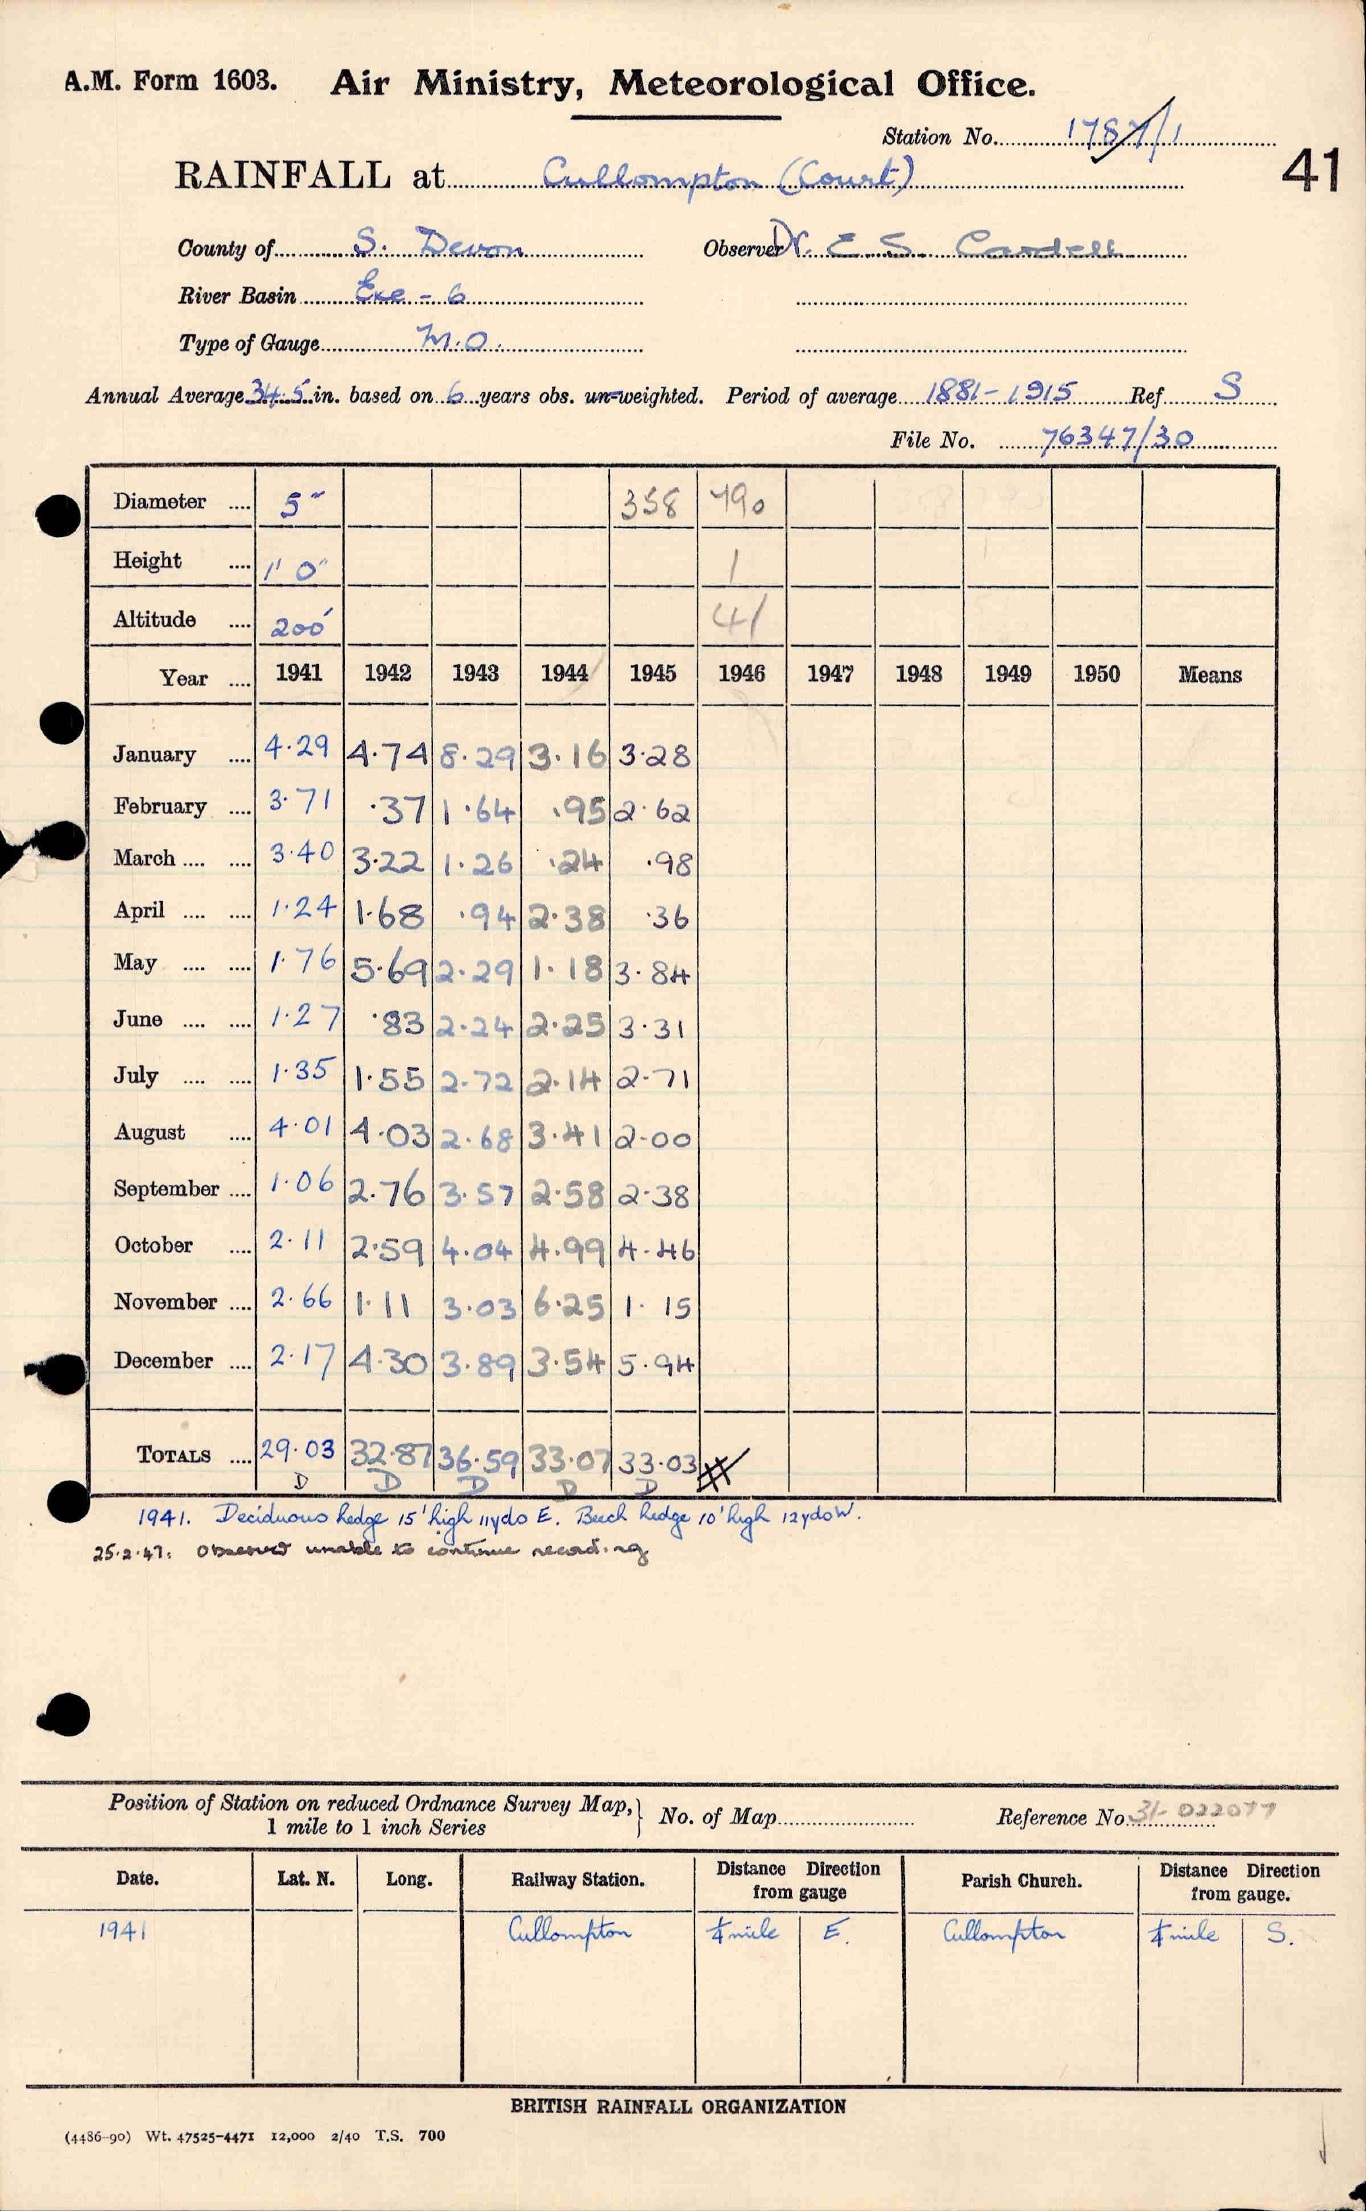 A.M. Form 1603. Air Ministry, Meteorological Office.
Station No. 1787/1
RAINFALL at Cullompton (Court)
41
County of S. Devon Observer Dr. E. S. Cardell
River Basin Exe - 6
Type of Gauge M.O.
Annual Average 34.5 in. based on 6 years obs. un-weighted. Period of average 1881-1915 Ref S
File No. 76347/30
Diameter .... 5" 358 790
Height .... 1' 0" 1
Altitude .... 200' 41
Year .... 1941 1942 1943 1944 1945 1946 1947 1948 1949 1950 Means
January .... 4.29 4.74 8.29 3.16 3.28
February .... 3.71 .37 1.64 .95 2.62
March .... .... 3.40 3.22 1.26 .24 .98
April .... .... 1.24 1.68 .94 2.38 .36
May .... .... 1.76 5.69 2.29 1.18 3.84
June .... .... 1.27 .83 2.24 2.25 3.31
July .... .... 1.35 1.55 2.72 2.14 2.71
August .... 4.01 4.03 2.68 3.41 2.00
September .... 1.06 2.76 3.57 2.58 2.38
October .... 2.11 2.59 4.04 4.99 4.46
November .... 2.66 1.11 3.03 6.25 1.15
December .... 2.17 4.30 3.89 3.54 5.94
TOTALS .... 29.03 32.87 36.59 33.07 33.03
D D D D D
1941. Deciduous hedge 15' high 11yds E. Beech hedge 10' high 12yds W.
25.2.47: Observer unable to continue recording
Position of Station on reduced Ordnance Survey Map, } No. of Map Reference No. 31-022077
1 mile to 1 inch Series
Date. Lat. N. Long. Railway Station. Distance Direction from gauge Parish Church. Distance Direction from gauge.
1941 Cullompton ¼ mile E. Cullompton ¼ mile S.
BRITISH RAINFALL ORGANIZATION
(4486-90) Wt. 47525-4471 12,000 2/40 T.S. 700